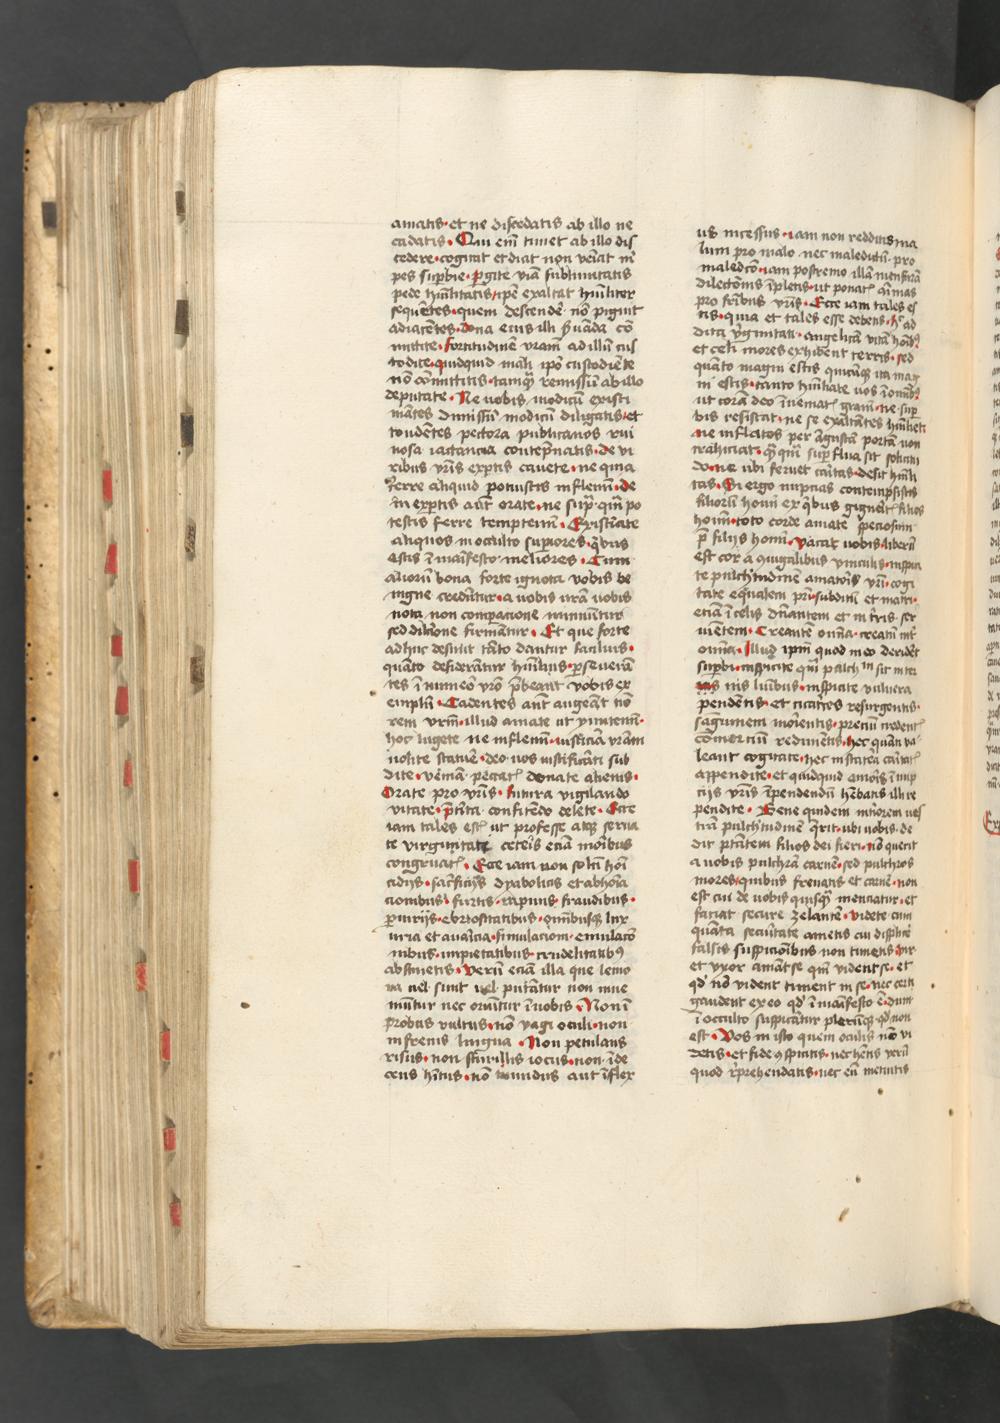 amatis · et ne discedatis ab illo ne
cadatis · Qui em̄ timet ab illo dis
cedere · cogitat et dicat non veīat m̄
pes sup̄bie · p̱gite viā sublimitatis
pede hūilitatis / ip̄e exaltat hūiliter
sequētes · quem descendē nō piguit
adiacētes · Dona eius illi p̄uāda cō
mittite · fortitudinē vr̄am ad illū cus
todite · quidquid mali ip̄o custodiēte
nō cōmittitis · tamq̄ remissū ab illo
deputate · Ne vobis modicū existi
mātes dimissū modicū diligatis / et
tondētes pectora publicanos rui
nosa iactancia contēp̄natis · de vi
ribus vr̄is exp̄tis cavete · ne quia
ferre aliquid potuistis inflemī · de
in exp̄tis aūt orate · ne sup̄ · qm̄ po
testis ferre temptemī · Existīate
aliquos in occulto sup̄iores · q̇bus
estis ī maīfesto meliores · Cum
aliorū bona forte ignota vobis be
nigne credūtur · a vobis vr̄a vobis
nota non compacione minuūtur
sed dilc̄ione firmātur · Et que forte
adhuc desunt tāto dantur facilius ·
quāto desiderātur hūilius · p̱seuerā
tes ī numeō vr̄o p̄beant vobis ex
emplū · Cadentes aūt augeāt tio
rem vr̄m · illud amate ut ymitemī ·
hoc lugete ne inflemī · iusticiā vr̄am
nolite statuē · deo uos iustificāti sub
dite · veīam peccat᷑ donate alienis ·
Orate pro vr̄is · futura vigilando
vitate · p̄tīta confitēdo delete · Ecce
iam tales est᷑ ut professe atq̄ serua
te virginitati ceteīs eciā moībus
congruat᷑ · Ecce iam non solū hoī
cidijs · sacrificijs dyabolicis et abhoīa
cionibus · furtis · rapinis · fraudibus ·
p̱iurijs · ebriositatibus · om̄ibusq̄ lux
uria et auaīcia · simulaciōnī · emulacō
nibus · impietatibus · crudelitatibꝰ
abstinetis · Verū eciā illa que leuio
ra uel sunt uel putātur non inue
niūtur nec oriūtur ī vobis · Non ī
probus vultus · nō vagi oculi · non
infrenis lingua · Non petulans
risus · non scurilis iocus · non īde
cens hītus · nō tumidus aut īflex
us incessus · iam non redditis ma
lum pro malo nec maledictū · pro
maledc̄o · iam postremo illā mensurā
dilectiōnis īpletis · ut ponat᷑ aīmas
pro fr̄ibus vr̄is · Ecce iam tales es
tis · quia et tales esse debetis · H̄ ad
dita v̇ginitati · angelicā vitā hoībꝰ
et celi mores exhibent terris · sed
quāto magni estis quicūq̄ ita mag
ni estis · tanto hūiliate uos ī om̄ibꝰ
ut corā deo īuemat᷑ graīm · ne sup̱
bis resistat · ne se exaltātes hūiliet
ne inflatos per āgustā portā non
trahiciat · q̄q̄m sup̱flua sit sollicitu
do · ne ubi feruet caītas · desit hūili
tas · Si ergo nuptias contempsistis
filiorū homī ex q̇bus gigneīt᷑ filios
hoīm · toto corde amate speciosum
p̄ filijs homī · vacat vobis · liberū
est cor a ꝯiugalibus vinculis · inspici
te pulchritudinē amatoīs vr̄i · cogi
tate equalem prī · subditū et matri ·
eciā ī celis dn̄antem et in tr̄is ser
uiētem · Creante om̄a · creatū int̄
om̄ia · Illud ip̄m quod in eo deridēt
sup̱bi · inspicite qm̄ pulchꝝ sit inter
nis luībus · inspicite vulnera
pendētis · et cicatīces resurgentis ·
sāguinem moīentis · preciū credent᷑
cōmerciū redimētis · hec quāti va
leant cogitate · hec in staterā caītat᷑
appendite · et quidquid amoīs ī nup
cijs vr̄is īpendendū hēbatis illi re
pendite · Bene quidem inīorem ves
trā pulchritudinē q̄rit · ubi vobis de
dit ptātem filios dei fieri · nō querit
a vobis pulchrā carnē · sed pulchros
mores / quibus frenatis et carnē · non
est cui de vobis quisq̄ menciatur · et
faciat secure zelantē · videte cum
quāta secuītate ametis cui displicē
falsis suspicionībus non timetis · vir
et vxor amāt se qm̄ vident se · et
qd̄ nō vident timent in se · nec certi
gaudent ex eo qd̄ ī maīfesto ē · dum
ī occulto suspicātur plerūq̄ · qd̄ non
est · Vos in isto quem oculis nō vi
detis · et fide ꝯspicitis · nec hētis verū
quod rep̄hendatis · nec em̄ metuitis